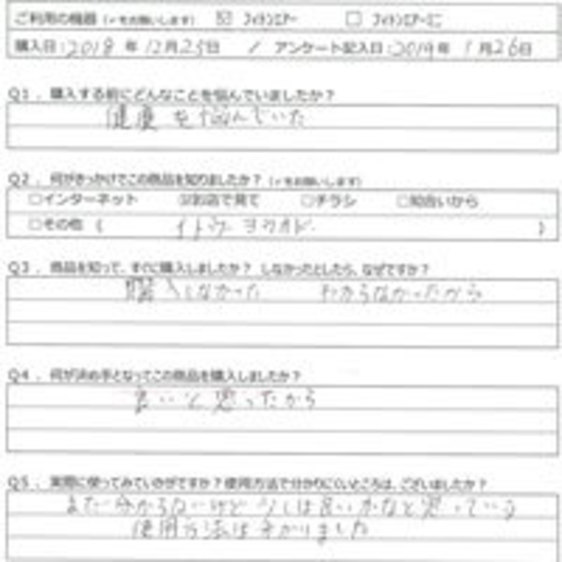 ご利用の機器（✓をお願いします） ☑ フィトンエアー ☐ フィトンエアーミニ
購入日：2018 年 12月25日 ／ アンケート記入日：2019年 1月26日
Q1．購入する前にどんなことを悩んでいましたか？
健康を悩んでいた
Q2．何がきっかけでこの商品を知りましたか？（✓をお願いします）
☐インターネット ☑お店で見て ☐チラシ ☐知合いから
☐その他（ イトウヨウカドー ）
Q3．商品を知って、すぐに購入しましたか？ しなかったとしたら、なぜですか？
購入しなかった わからなかったから
Q4．何が決め手となってこの商品を購入しましたか？
良いと思ったから
Q5．実際に使ってみていかがですか？使用方法で分かりにくいところは、ございましたか？
まだ分からないけど少しは良いかなと思っている
使用方法は分かりました